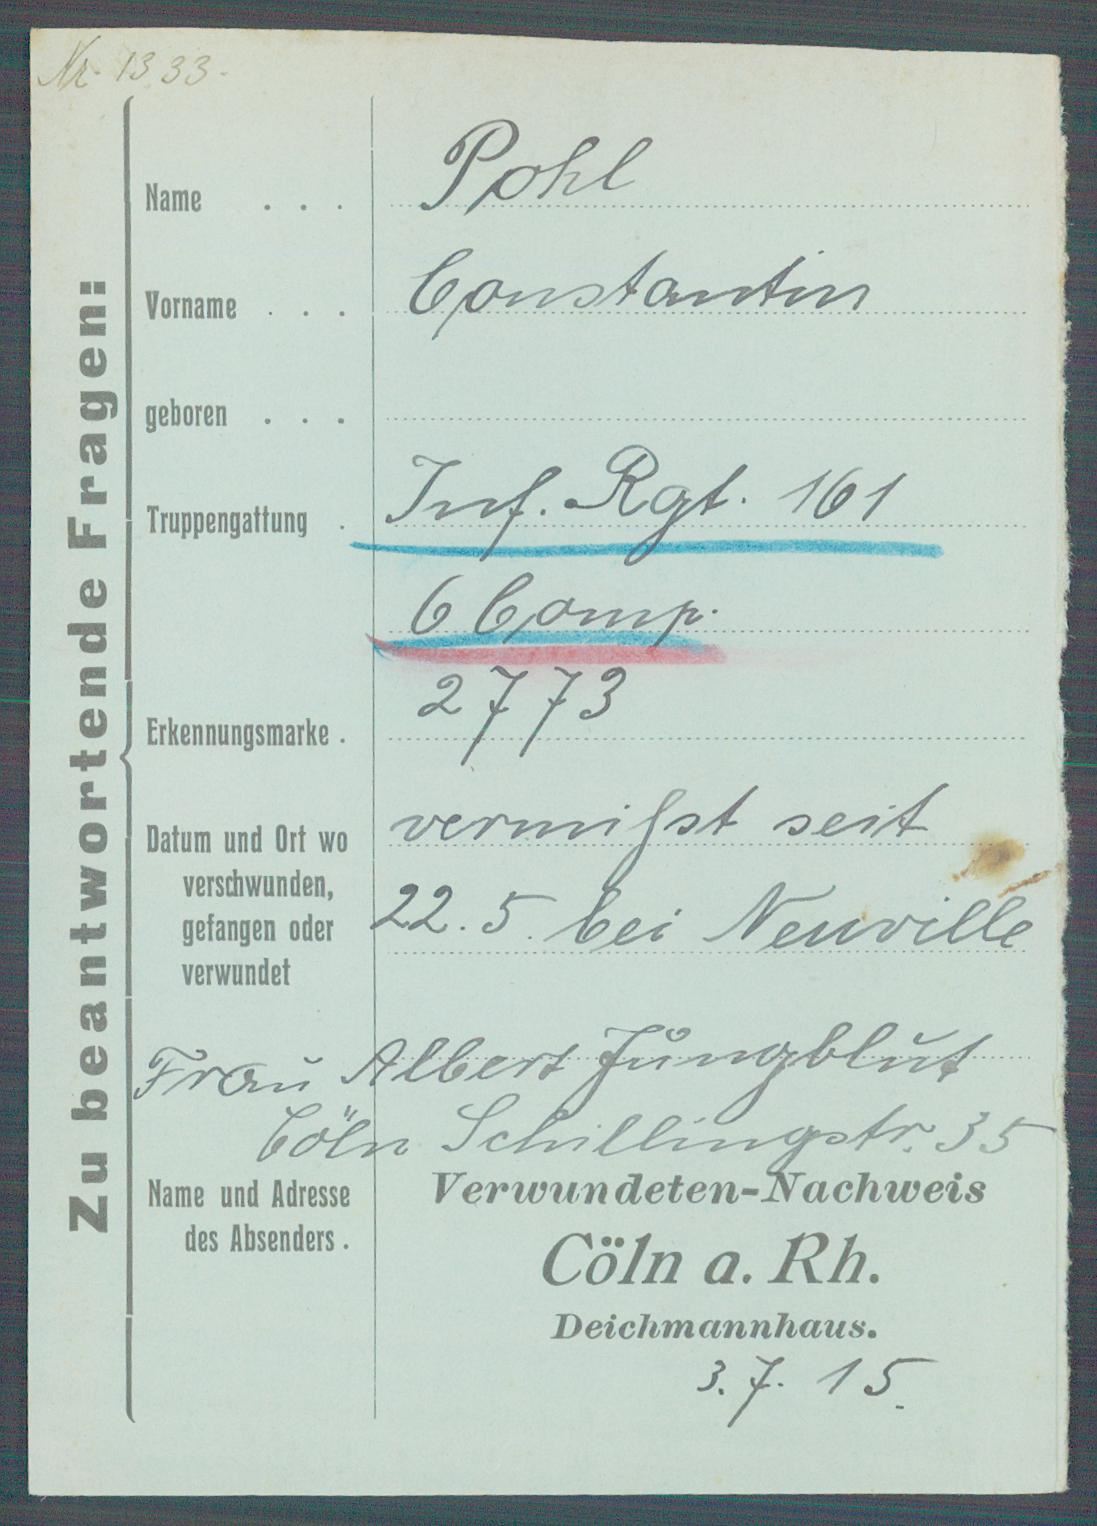 Nr. 1333.
Zu beantwortende Fragen:
Name . . . Pohl
Vorname . . . Constantin
geboren . . .
Truppengattung . Inf. Rgt. 161
6 Comp.
Erkennungsmarke . 2773
Datum und Ort wo vermißst seit
verschwunden, 22. 5. bei Neuville
gefangen oder
verwundet
Frau Albert Jungblut
Cöln Schillingstr. 35
Name und Adresse Verwundeten-Nachweis
des Absenders . Cöln a. Rh.
Deichmannhaus.
3. 7. 15.